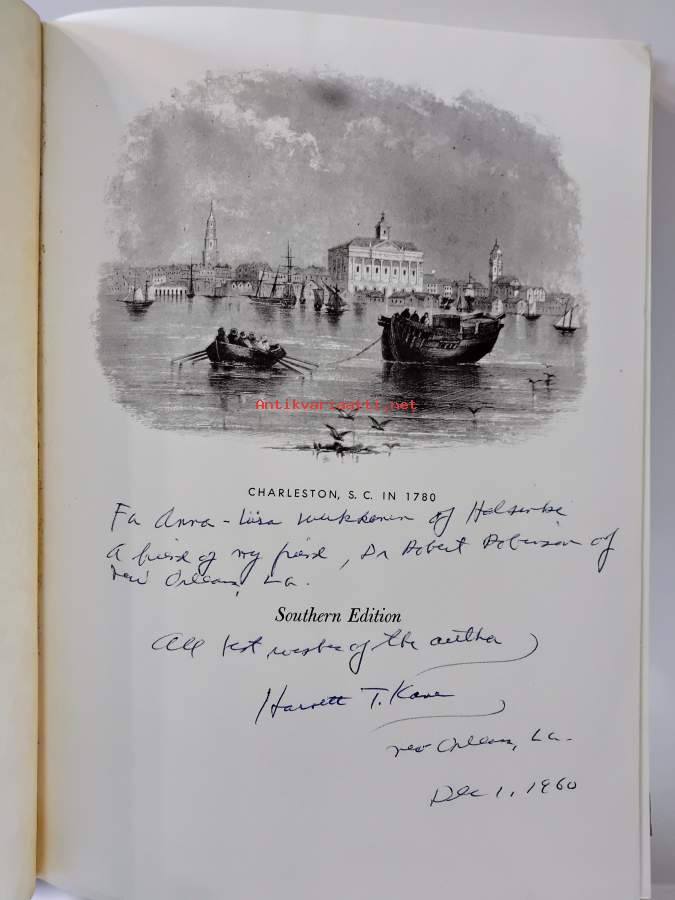 Antikvariaatti.net
CHARLESTON, S. C. IN 1780
Fa Anna-Liisa of Helsinki
A friend of my friend, Dr Robert Robinson of
New Orleans, La.
Southern Edition
All best wishes of the author
Harnett T. Kane
New Orleans, La.
Dec 1, 1960